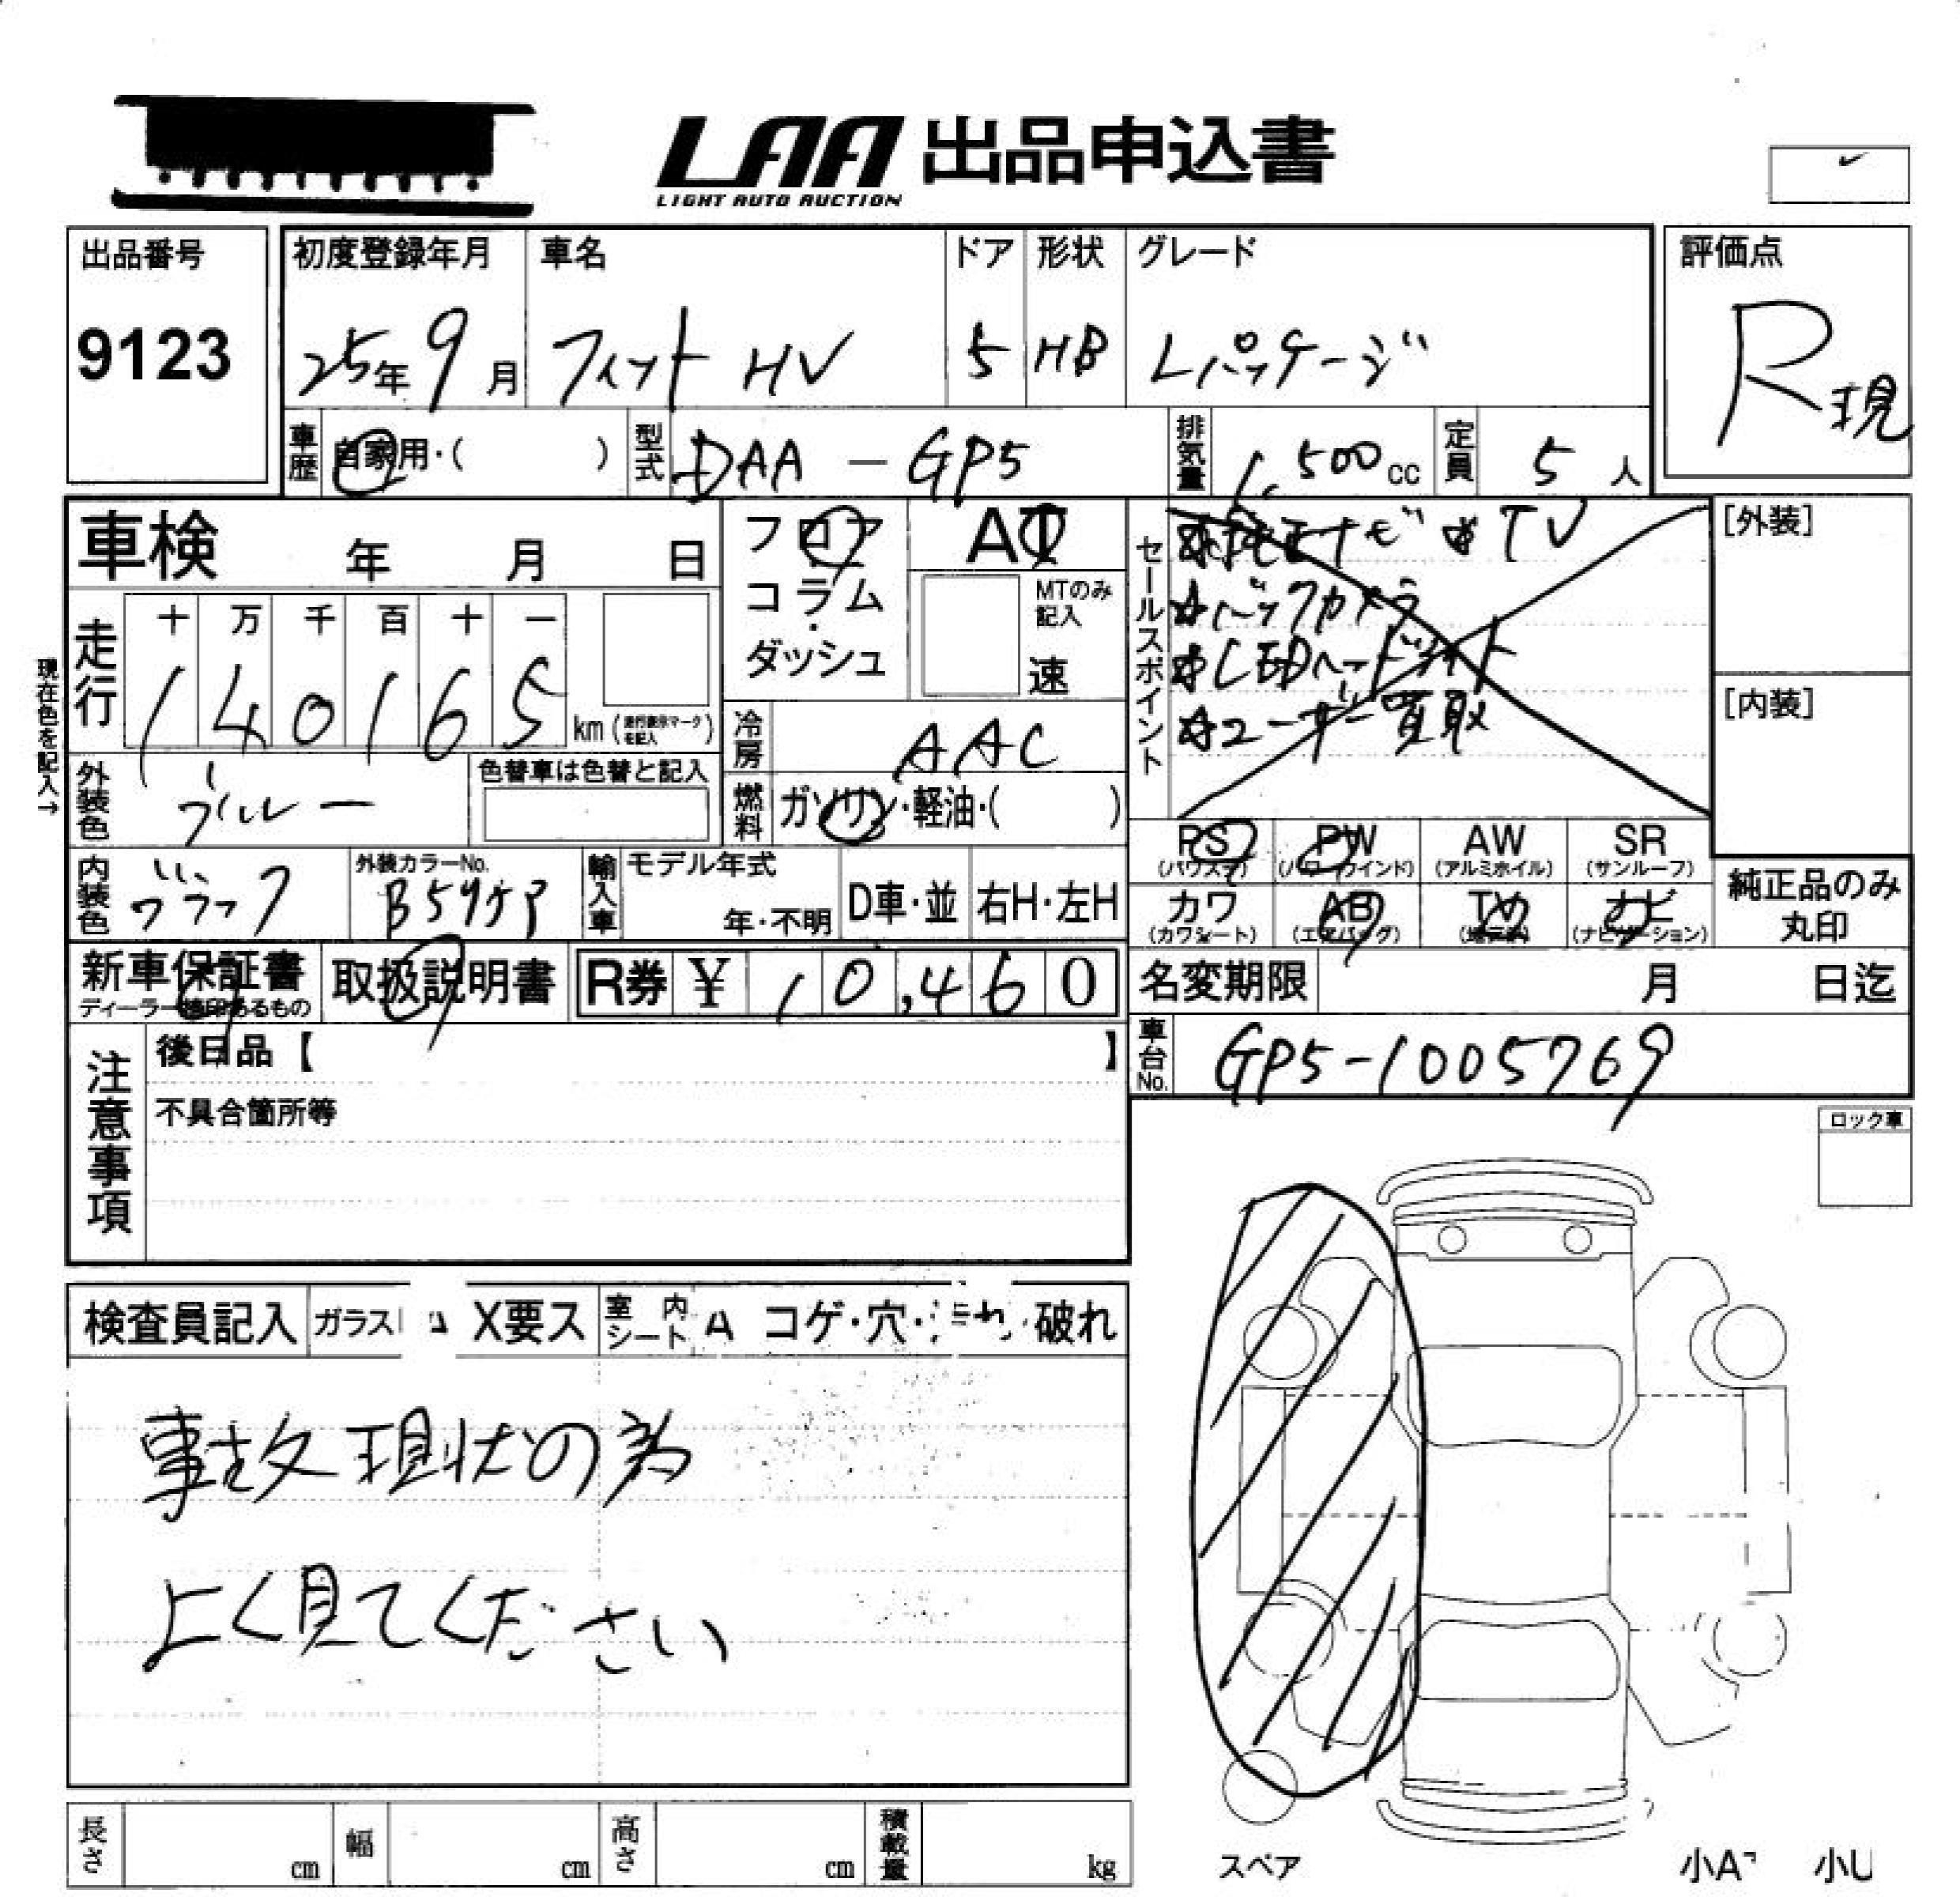 LAA 出品申込書
LIGHT AUTO AUCTION
出品番号
9123
初度登録年月
25年9月
車名
フィット HV
ドア
5
形状
HB
グレード
Lパッケージ
評価点
R現
車歴
自家用・( )
型式
DAA-GP5
排気量
1,500cc
定員
5人
車検 年 月 日
フロア
コラム
・
ダッシュ
AT
MTのみ記入
速
セールスポイント
ナビ TV
バックカメラ
LEDヘッドライト
ユーザー買取
[外装]
[内装]
現在色を記入→
走行
十 万 千 百 十 一
1 4 0 1 6 5
km(走行表示マークを記入)
冷房
AAC
外装色
ブルー
色替車は色替と記入
燃料
ガソリン・軽油・( )
PS (パワステ)
PW (パワーウインド)
AW (アルミホイル)
SR (サンルーフ)
内装色
ブラック
外装カラーNo.
輸入車
モデル年式
年・不明
D車・並
右H・左H
カワ (カワシート)
AB (エアバッグ)
TV (地デジ)
ナビ (ナビゲーション)
純正品のみ丸印
新車保証書
取扱説明書
R券 ¥ 10,460
名変期限 月 日迄
車台No.
GP5-1005769
注意事項
後日品【 】
不具合箇所等
ロック車
検査員記入
ガラス
X要ス
室内シート
A コゲ・穴・ 破れ
事故現状の為
よく見てください
長さ cm
幅 cm
高さ cm
積載量 kg
スペア
小A
小U